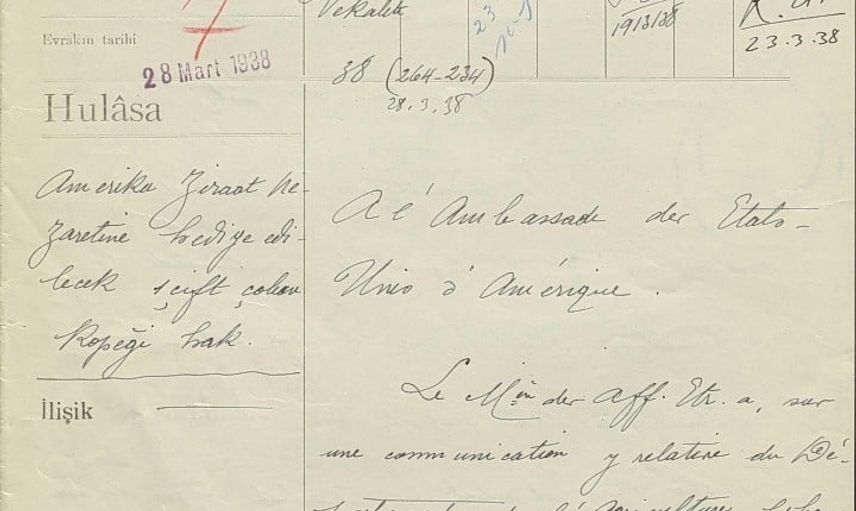 Vekalete
23
19/3/38
23.3.38
Evrakın tarihi
28 Mart 1938
38 (264-234)
28.3.38
Hulâsa
Amerika Ziraat Ne-
zaretine hediye edi-
lecek 1 çift çoban
Köpeği hak.
İlişik
A l'Ambassade des Etats-
Unis d'Amérique.
Le Min des Aff. Etr. a, sur
une communication y relative du Dé-
l'Agriculture